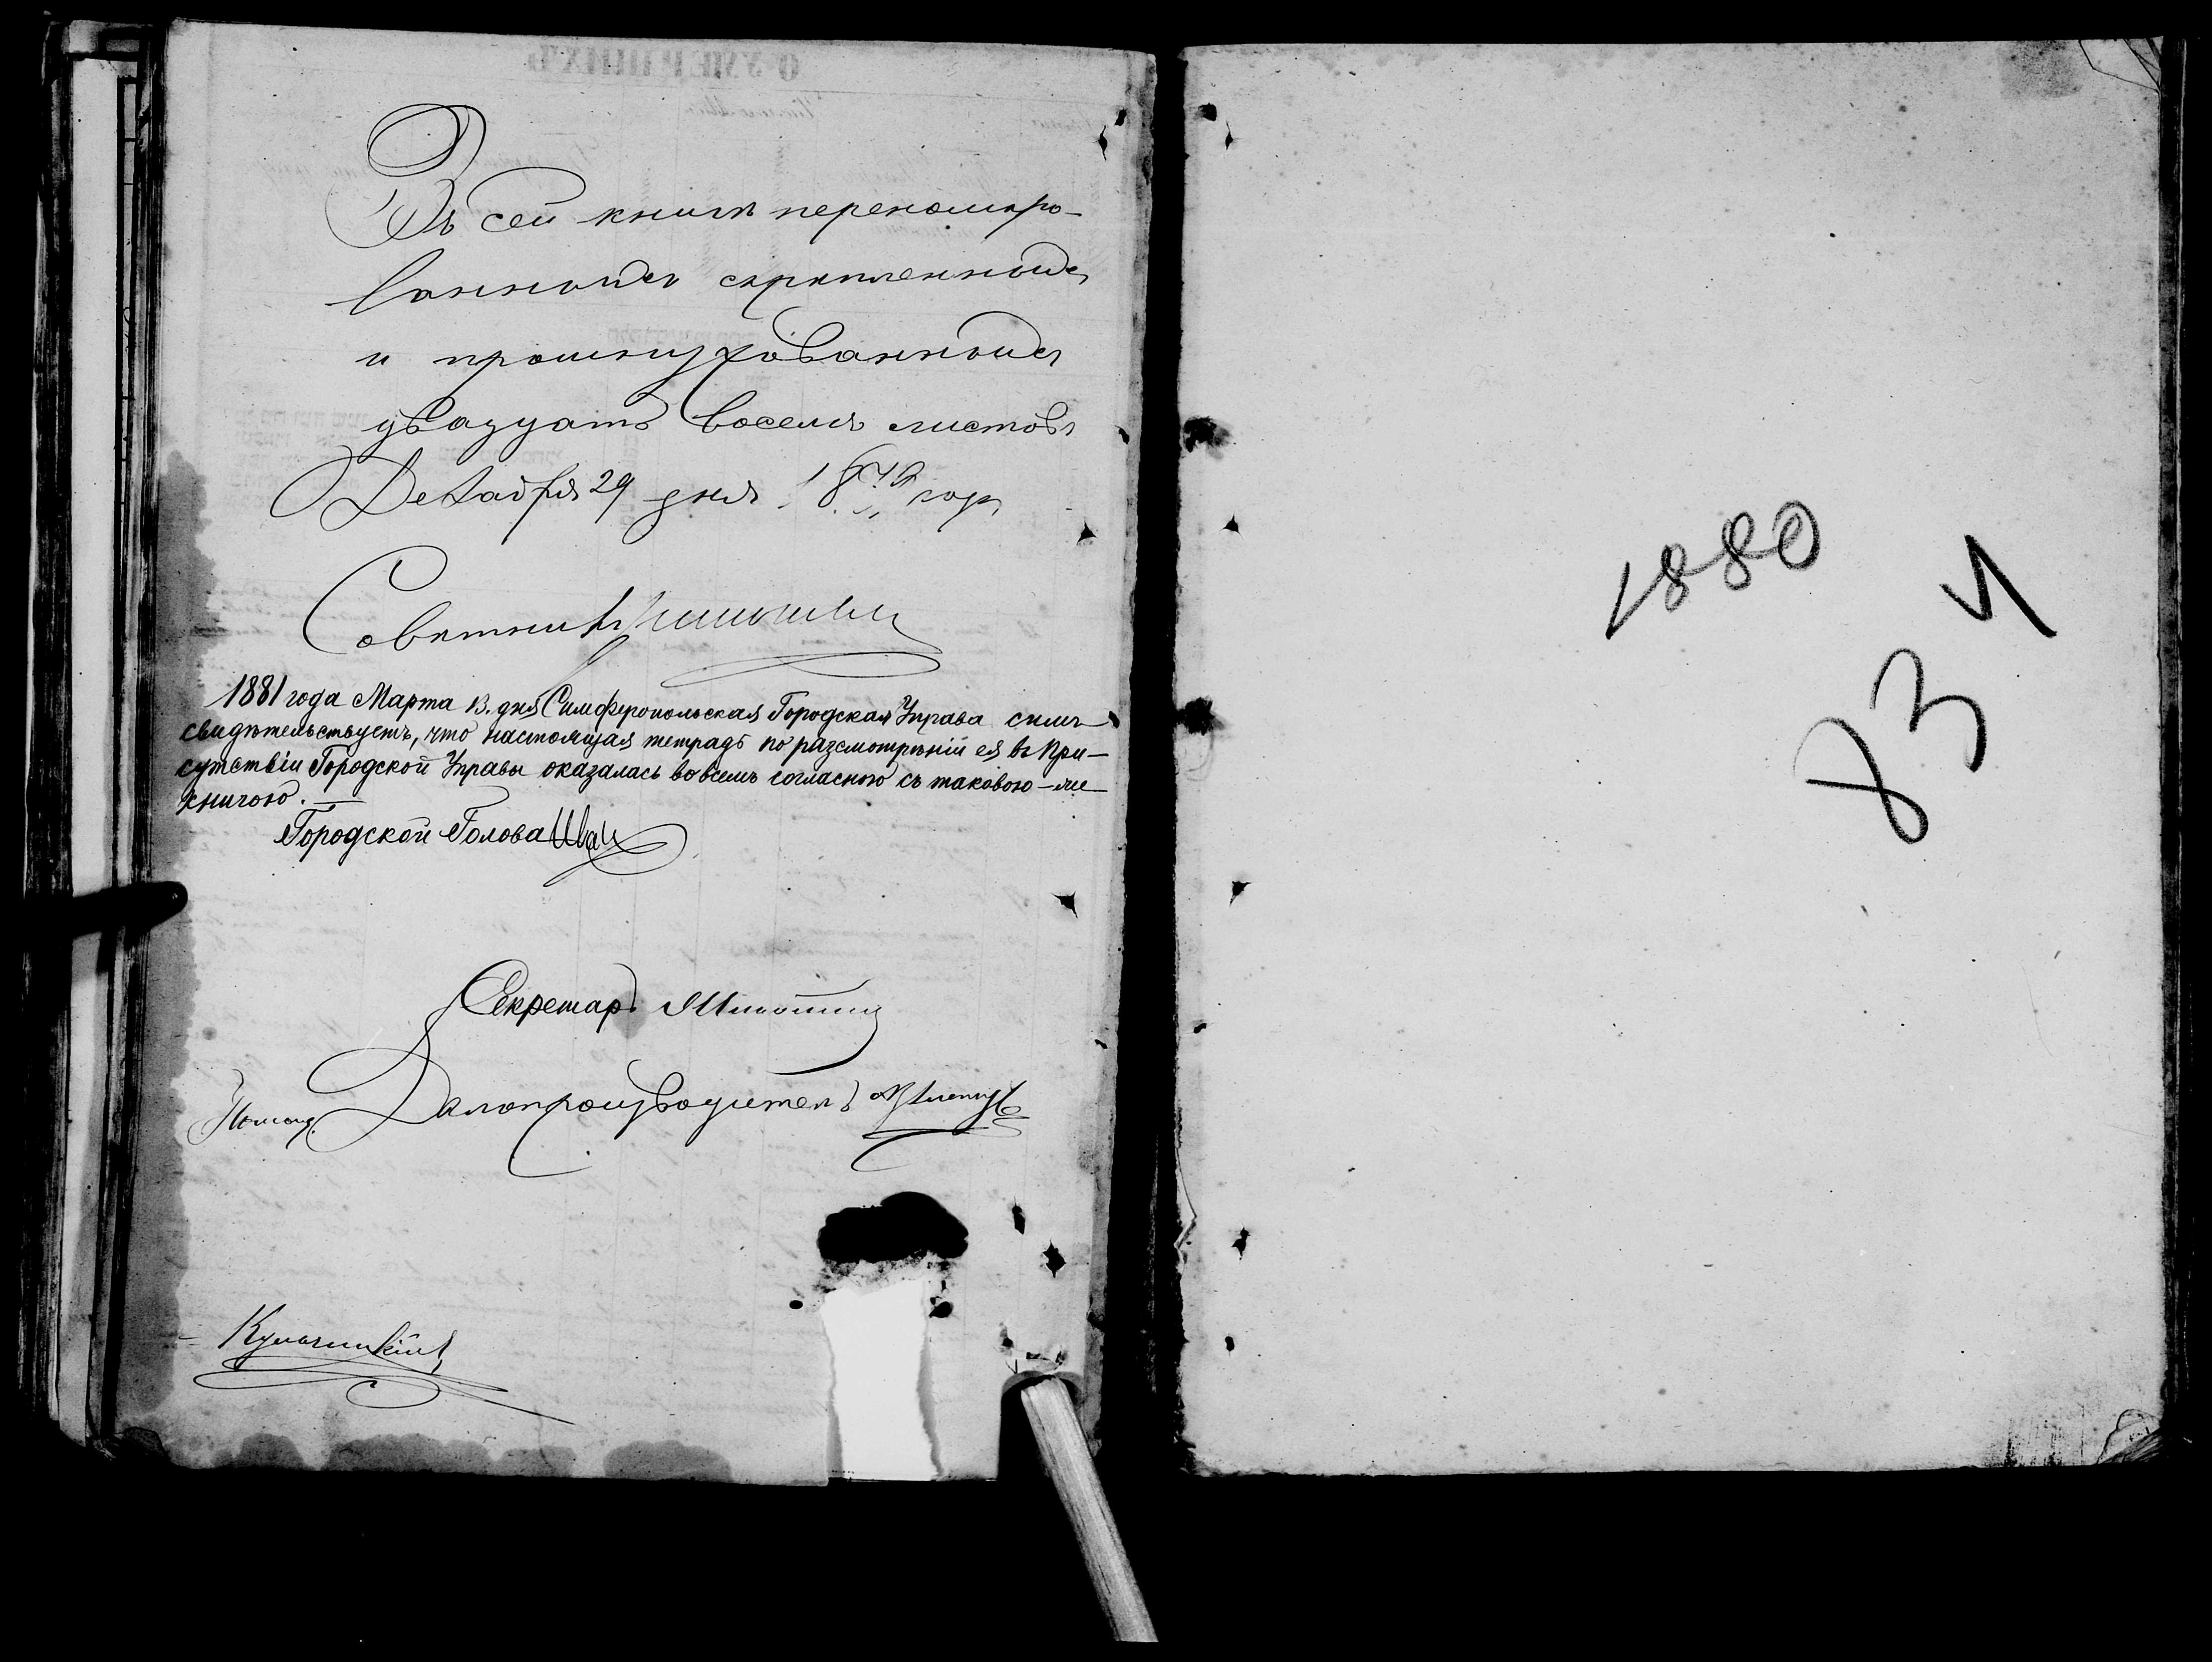 Въ сей книгѣ переномеро-
ванныхъ скрѣпленныхъ
и прошнурованныхъ
двадцать восемь листовъ
Декабря 29 дня 1879 года
Совѣтникъ
1881 года Марта 13. дня Симферопольская Городская Управа симъ
свидѣтельствуетъ, что настоящая тетрадь по разсмотрѣніи ея въ При-
сутствіи Городской Управы оказалась во всемъ согласною съ таковою-же
книгою.
Городской Голова Иванъ
Секретарь
Помощ. Дѣлопроизводитель
1880
831